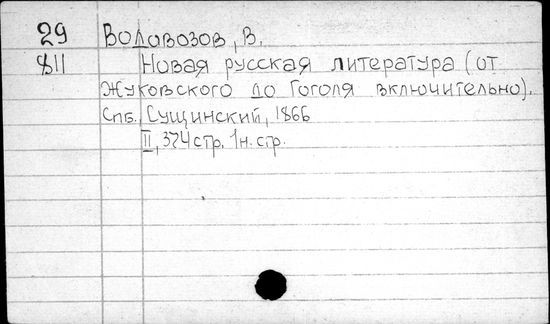 29 Водовозов, В.
811 Новая русская литература (от
Жуковского до Гоголя включительно).
Спб. Сущинский, 1866
II, 374 стр. 1 н. стр.